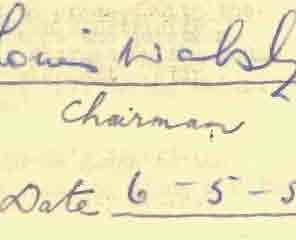 Louis Walsh
Chairman
Date 6-5-5